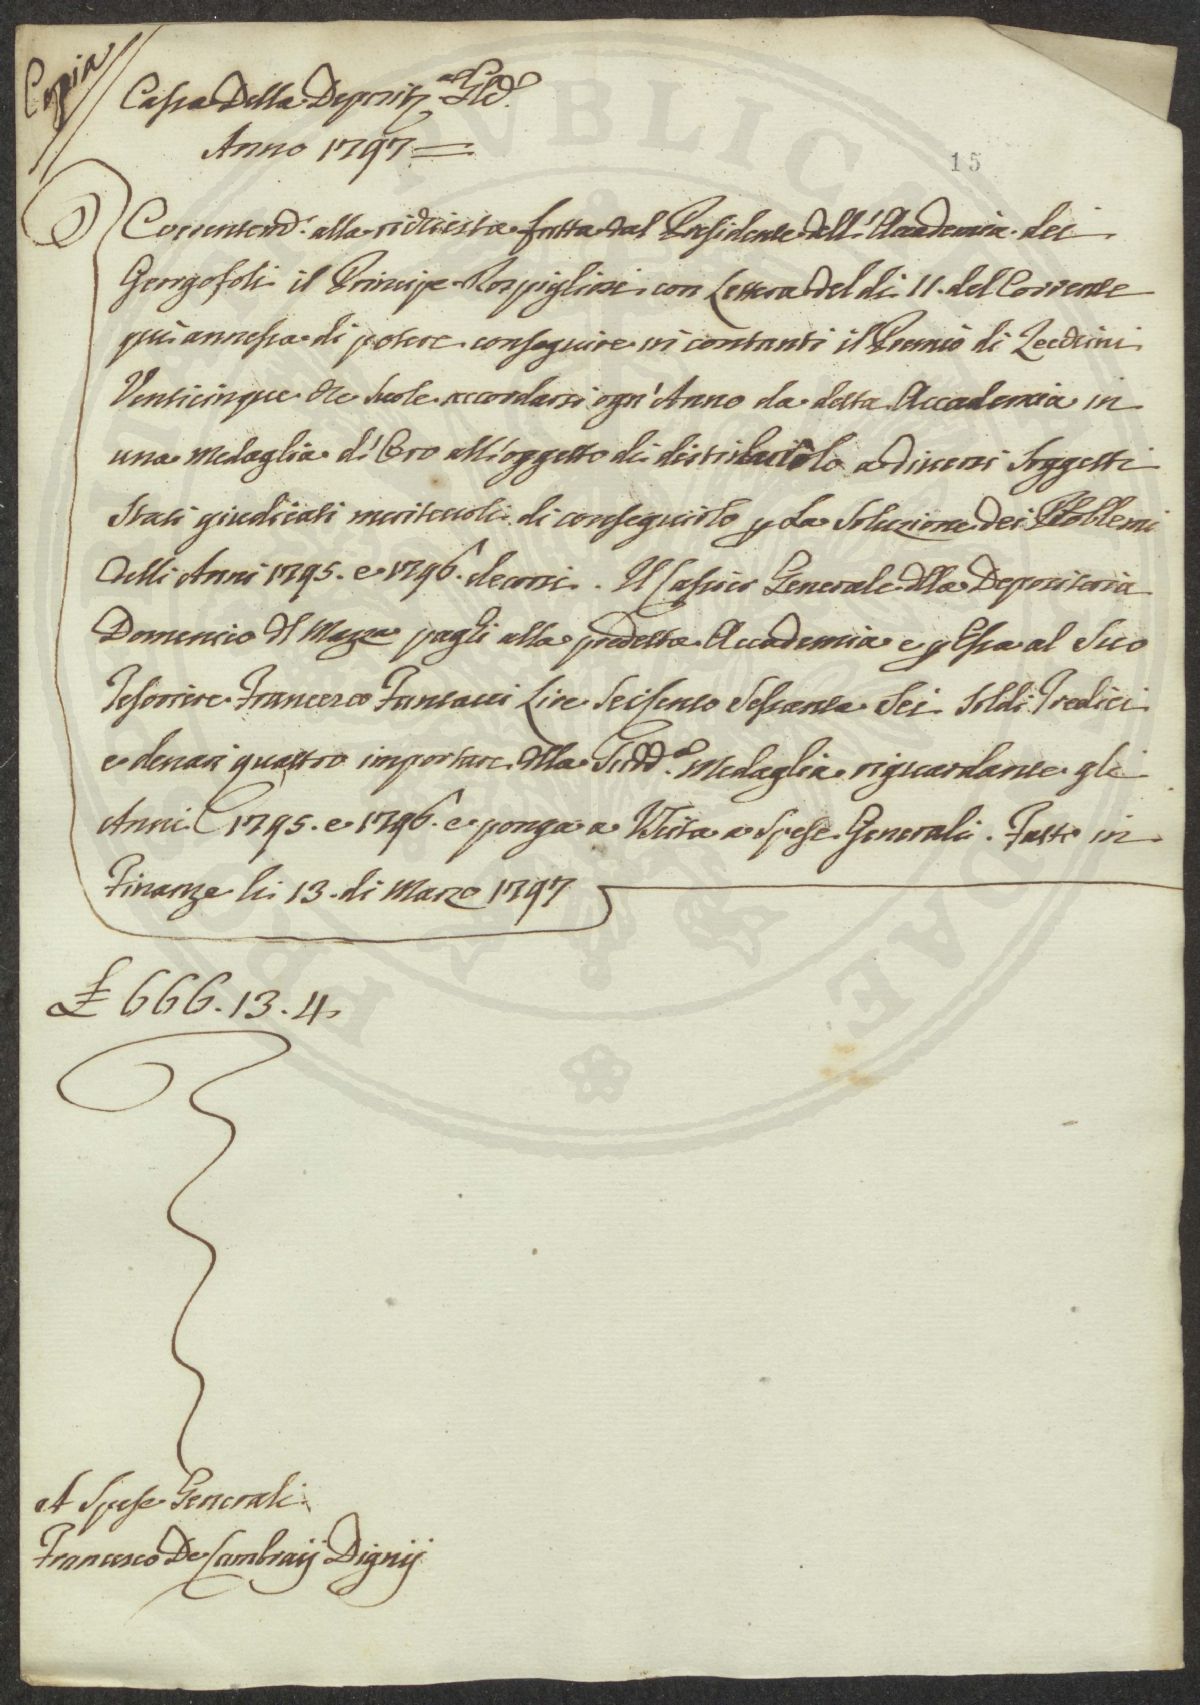 Copia
Cassa Della Deposit.a Gle.
Anno 1797
15
alla richiesta fatta dal Presidente dell' Accademia dei
Georgofoli il Principe Rospigliosi con Lettera del dì 11. del Corrente
quì annessa di potere conseguire in contanti il Premio di Zecchini
Venticinque che suole accordarsi ogn' Anno da detta Accademia in
una Medaglia d' Oro all' oggetto di distribuirlo a diversi Soggetti
Stati giudicati meritevoli di conseguirlo p la Soluzione dei Problemi
delli Anni 1795. e 1796. decorsi. Il Cassier Generale della Depositeria
Domenico Del Mazza paghi alla predetta Accademia e p Essa al Suo
Tesoriere Francesco Lire Seicento Sessanta Sei Soldi Tredici
e denari quattro importare della Sudd.a Medaglia riguardante gli
Anni 1795. e 1796. e ponga a Uscita a Spese Generali. Fatto in
Finanze li 13. di Marzo 1797
£ 666. 13. 4
A Spese Generali
Francesco De Cambraij Dignij
PUBLICAE